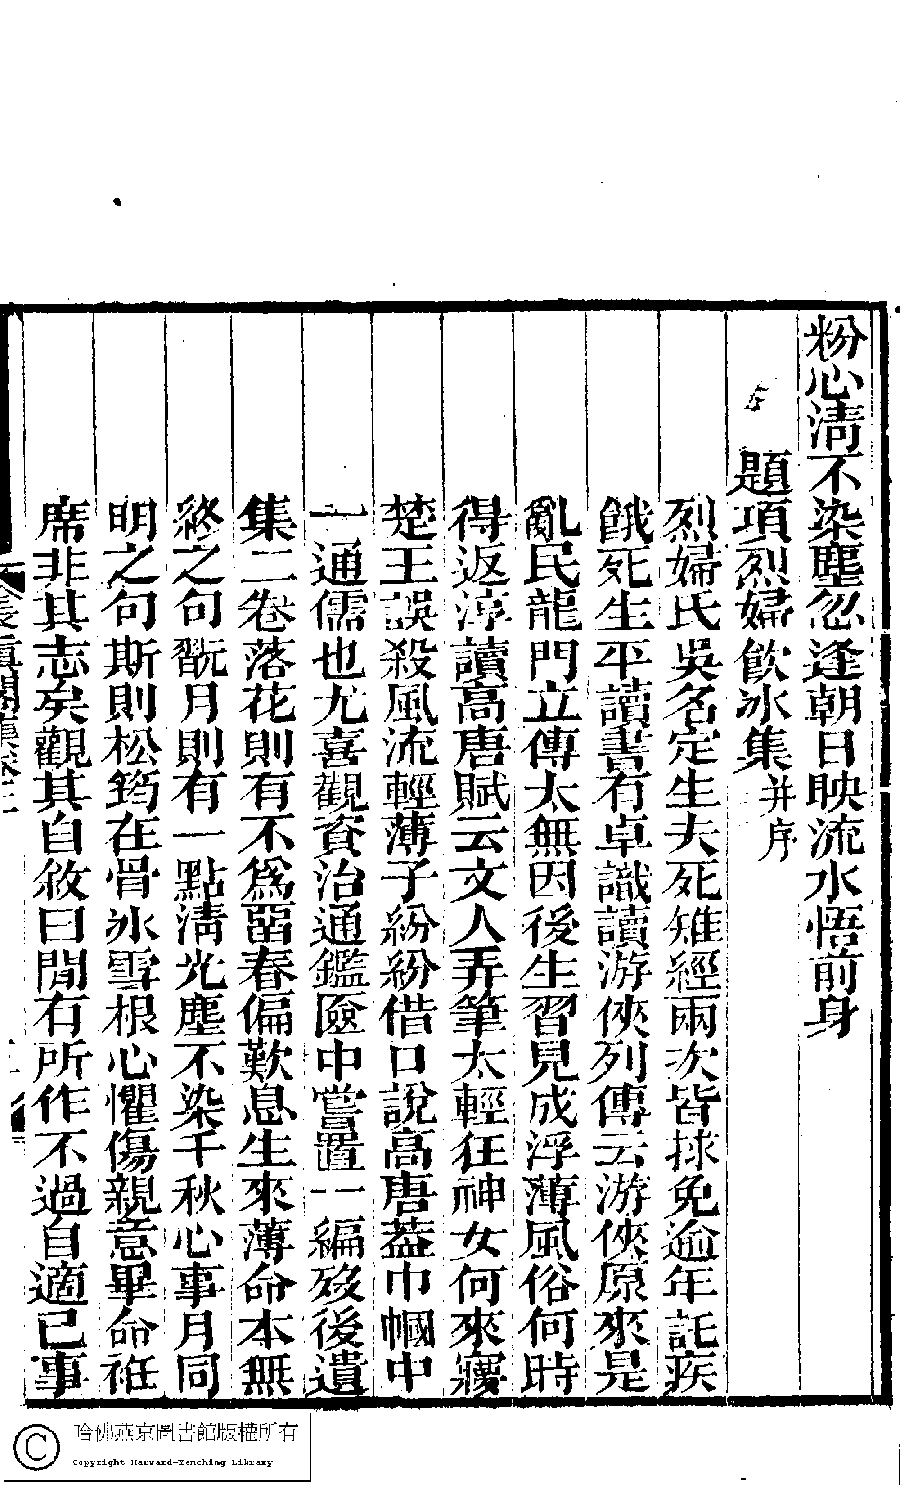 粉心淸不染塵忽逢朝日映流水悟前身
題項烈婦飮冰集并序
烈婦氏吳名定生夫死雉經兩次皆捄免逾年託疾
餓死生平讀書有卓識讀游俠列傳云游俠原來是
亂民龍門立傳太無因後生習見成浮薄風俗何時
得返淳讀高唐賦云文人弄筆太輕狂神女何來寱
楚王誤殺風流輕薄子紛紛借口說高唐葢巾幗中
一通儒也尤喜觀資治通鑑匳中嘗置一編歿後遺
集二卷落花則有不爲罶春偏歎息生來薄命本無
終之句翫月則有一點淸光塵不染千秋心事月同
明之句斯則松筠在骨冰雪根心懼傷親意畢命袵
席非其志矣觀其自敘曰閒有所作不過自適已事
長眞閣集卷二
哈佛燕京圖書館版權所有
Copyright Harvard-Yenching Library